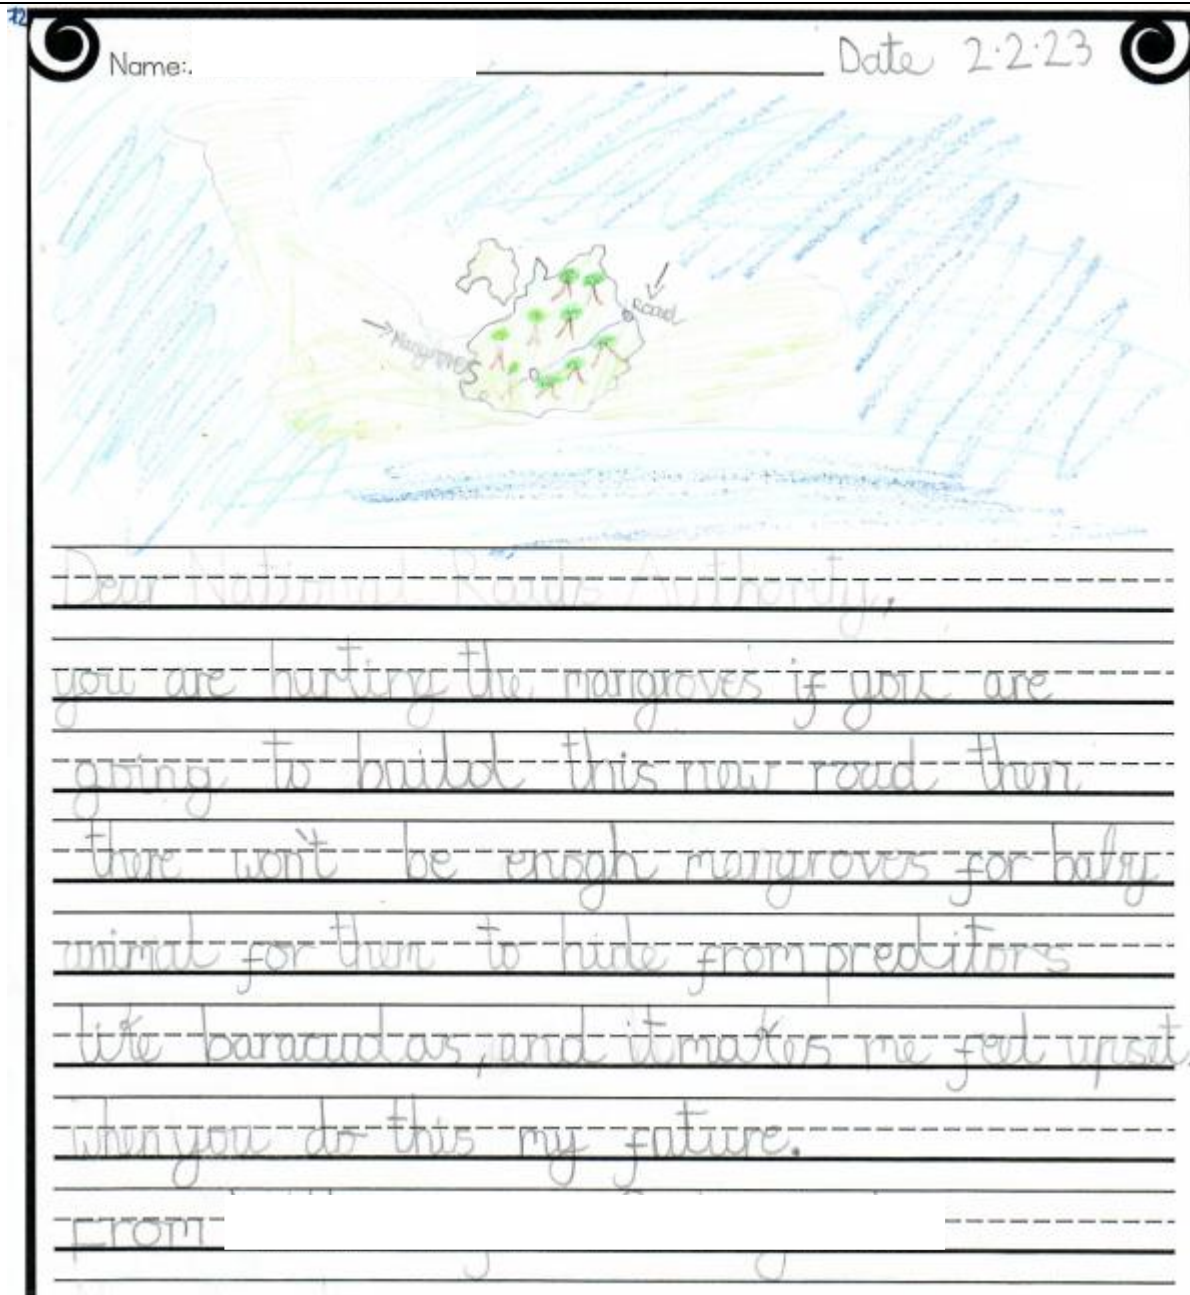 12
Name:
Date 2.2.23
Road
Mangroves
Dear National Roads Authority,
you are hurting the mangroves if you are
going to build this new road then
there won't be enogh mangroves for baby
animal for them to hide from preditors
like baracudas, and it makes me feel upset.
when you do this my future.
From